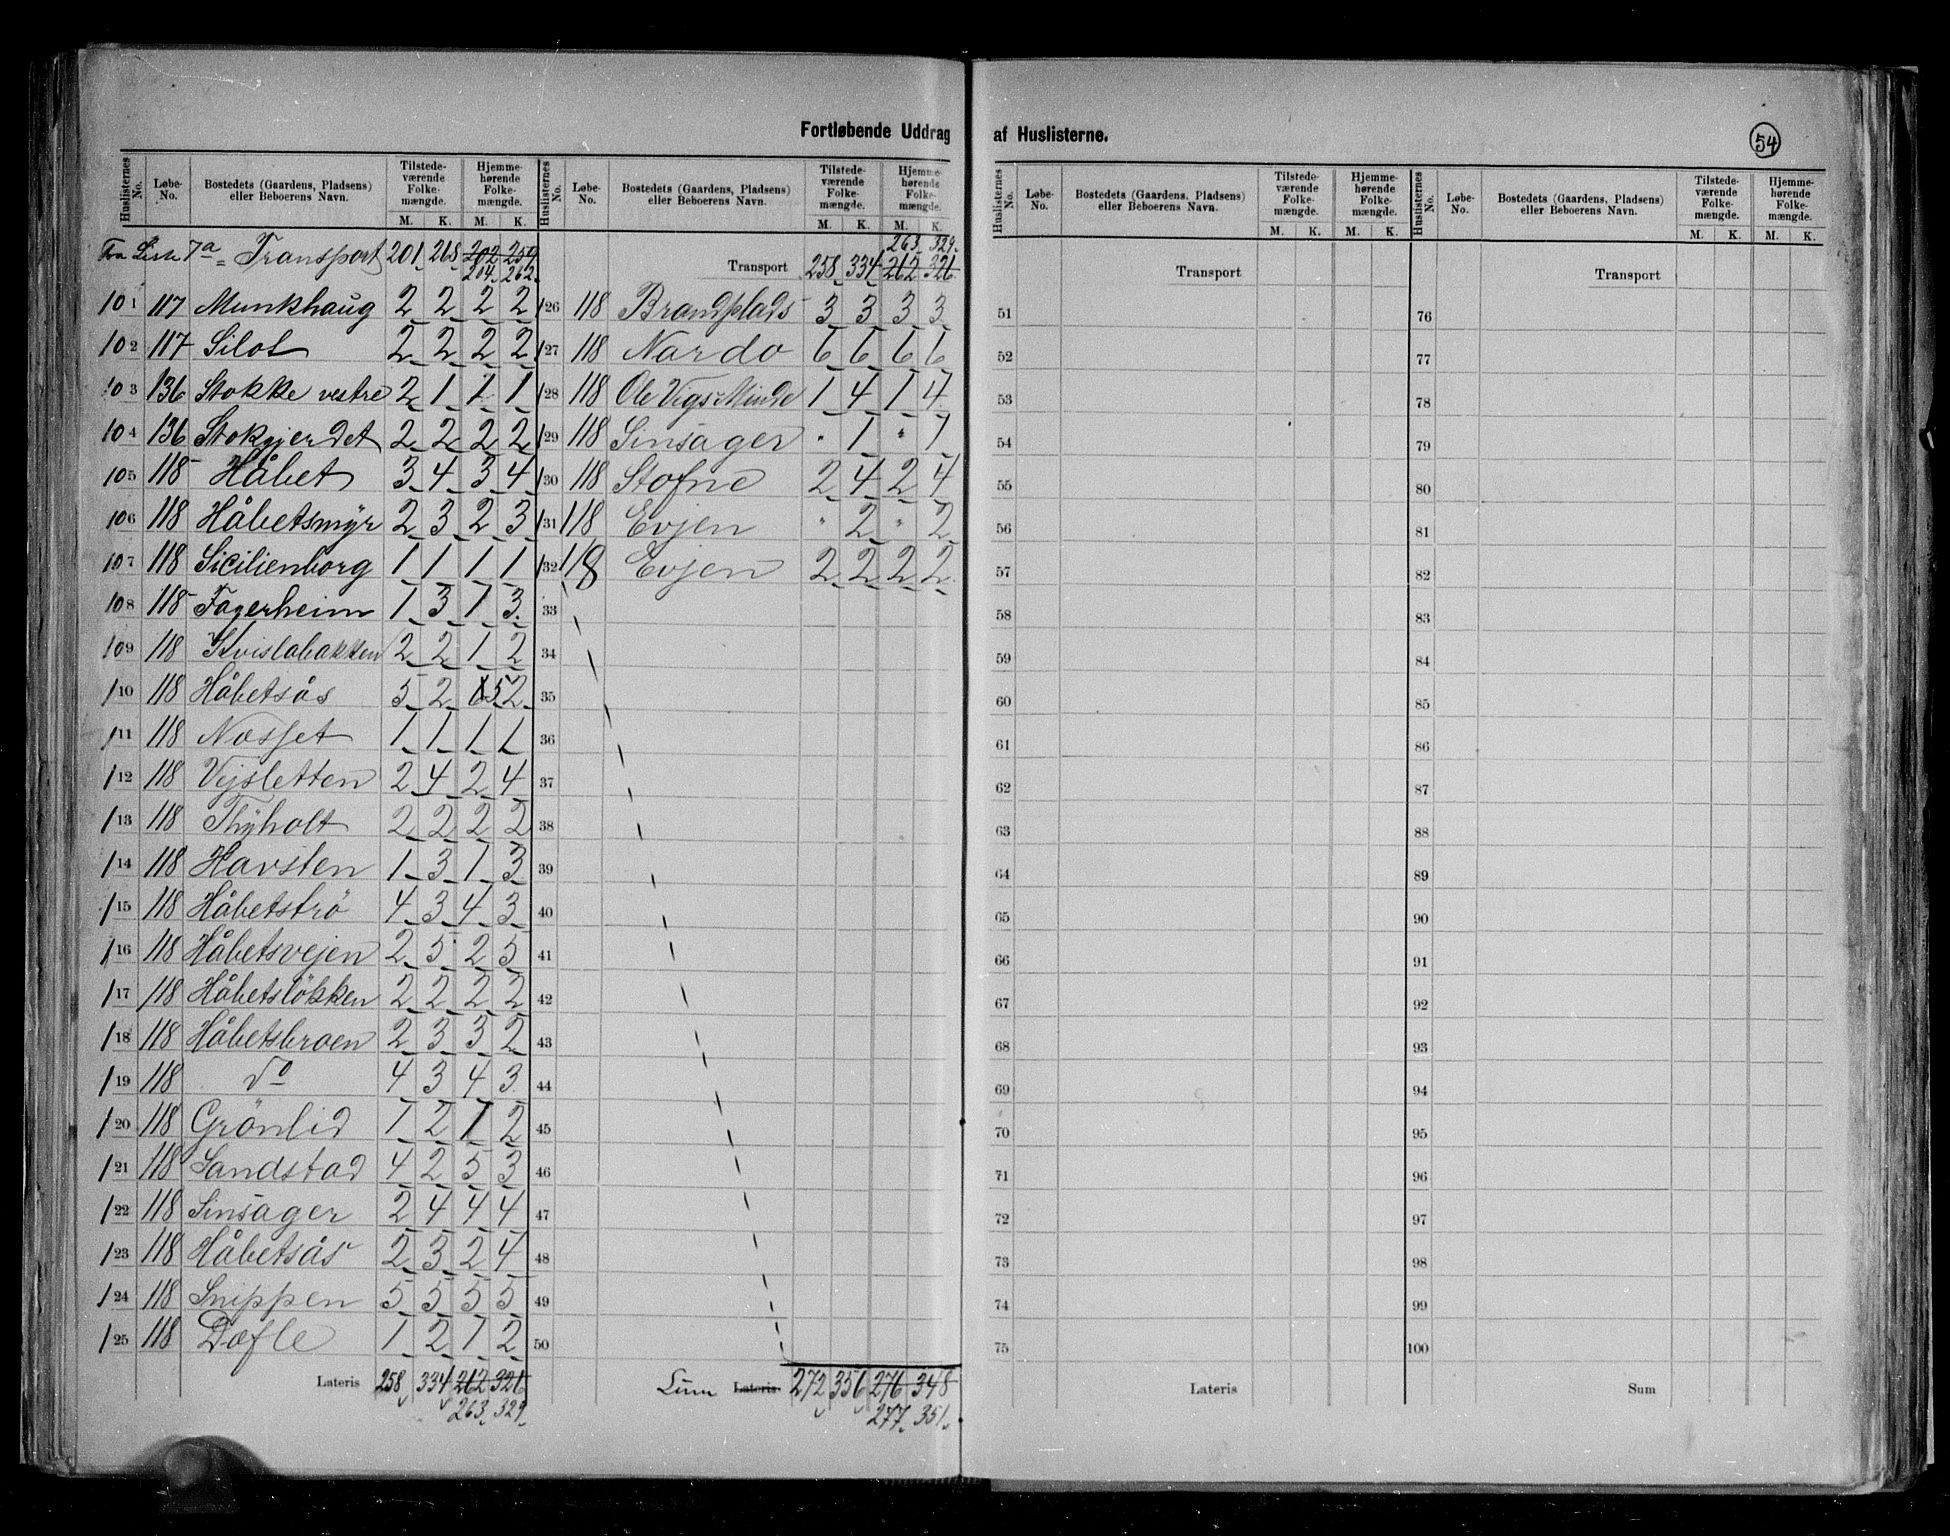 Fortløbende Uddrag af Huslisterne.
54
Huslisternes No. | Løbe-No. | Bostedets (Gaardens, Pladsens) eller Beboerens Navn. | Tilstedeværende Folkemængde. M. K. | Hjemmehørende Folkemængde. M. K.
Fra Liste 7a Transport 201 268 202 259
204 262
101 117 Munkhaug 2 2 2 2
102 117 Silot 2 2 2 2
103 136 Stokke vestre 2 1 2 1
104 136 Stokgjerdet 2 2 2 2
105 118 Håbet 3 4 3 4
106 118 Håbetsmyr 2 3 2 3
107 118 Sicilienborg 1 1 1 1
108 118 Fagerheim 1 3 1 3
109 118 Kvislabakken 2 2 1 2
110 118 Håbetsås 5 2 5 2
111 118 Næsset 1 1 1 1
112 118 Vejsletten 2 4 2 4
113 118 Thyholt 2 2 2 2
114 118 Havsten 1 3 1 3
115 118 Håbetstrø 4 3 4 3
116 118 Håbetsvejen 2 5 2 5
117 118 Håbetsløkken 2 2 2 2
118 118 Håbetsbroen 2 3 3 2
119 118 Do 4 3 4 3
120 118 Grönlid 1 2 1 2
121 118 Sandstad 4 2 5 3
122 118 Sinsager 2 4 4 4
123 118 Håbetsås 2 3 2 4
124 118 Snippen 5 5 5 5
125 118 Dæfle 1 2 1 2
Lateris 258 334 262 326
263 329
Huslisternes No. | Løbe-No. | Bostedets (Gaardens, Pladsens) eller Beboerens Navn. | Tilstedeværende Folkemængde. M. K. | Hjemmehørende Folkemængde. M. K.
263 329
Transport 258 334 262 326
126 118 Brandplads 3 3 3 3
127 118 Nardo 6 6 6 6
128 118 Ole Vigs Minde 1 4 1 4
129 118 Sinsager " 1 " 1
130 118 Stofne 2 4 2 4
131 118 Evjen " 2 " 2
132 118 Evjen 2 2 2 2
33
34
35
36
37
38
39
40
41
42
43
44
45
46
47
48
49
50
Sum Lateris 272 356 276 348
277 351
Huslisternes No. | Løbe-No. | Bostedets (Gaardens, Pladsens) eller Beboerens Navn. | Tilstedeværende Folkemængde. M. K. | Hjemmehørende Folkemængde. M. K.
Transport
51
52
53
54
55
56
57
58
59
60
61
62
63
64
65
66
67
68
69
70
71
72
73
74
75
Lateris
Huslisternes No. | Løbe-No. | Bostedets (Gaardens, Pladsens) eller Beboerens Navn. | Tilstedeværende Folkemængde. M. K. | Hjemmehørende Folkemængde. M. K.
Transport
76
77
78
79
80
81
82
83
84
85
86
87
88
89
90
91
92
93
94
95
96
97
98
99
100
Sum